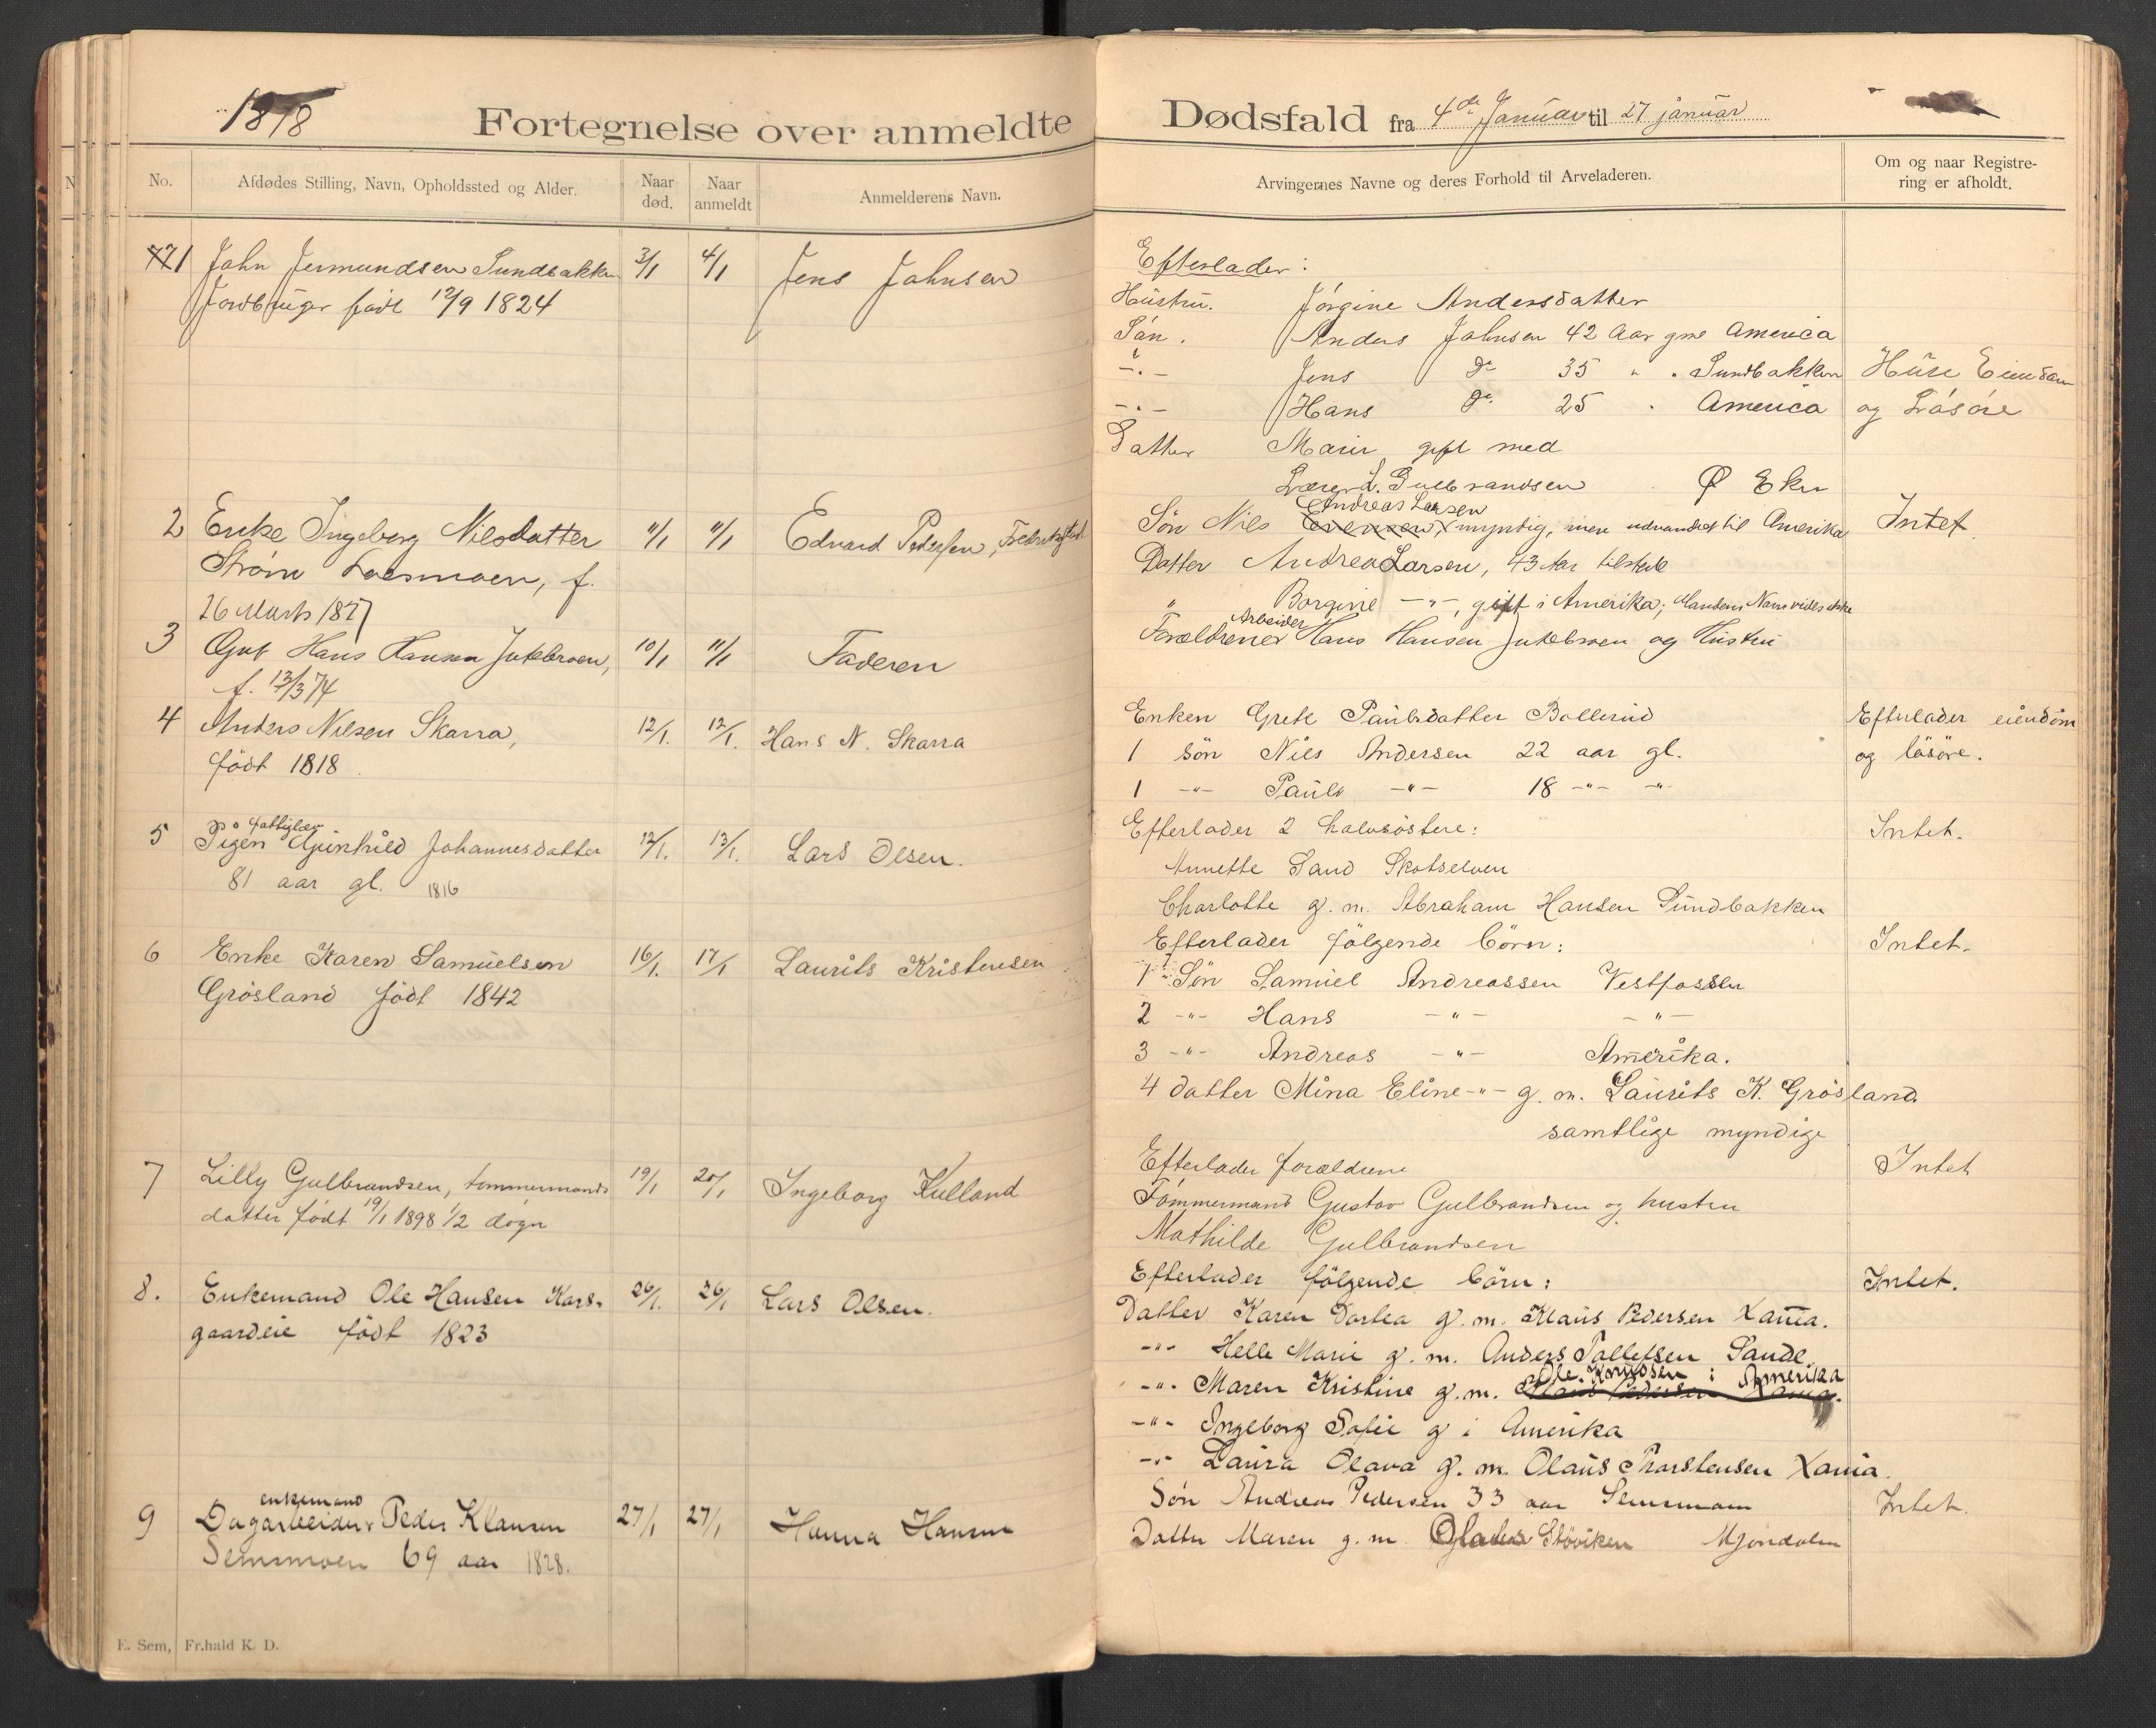 1898
Fortegnelse over anmeldte
No.
Afdødes Stilling, Navn, Opholdssted og Alder.
Naar død.
Naar anmeldt
Anmelderens Navn.
1 John Jermundsen Sundbakken 3/1 4/1 Jens Johnsen
Jordbruger født 12/9 1824
2 Enke Ingeborg Nilsdatter 11/1 11/1 Edvard Pedersen, Fredrikstad
Strøm Loesmoen, f.
26 Marts 1827
3 Gut Hans Hansen Jutebroen, 10/1 11/1 Faderen
f. 13/3 74
4 Anders Nilsen Skarra, 12/1. 12/1. Hans N. Skarra
født 1818
fattiglem
5 Pigen Gunhild Johannesdatter 12/1. 13/1. Lars Olsen.
81 aar gl. 1816
6 Enke Karen Samuelsen 16/1. 17/1 Laurits Kristensen
Grösland födt 1842
7 Lilly Gulbrandsen, tømmermands 19/1 20/1 Ingeborg Kulland
datter født 19/1 1898 1/2 døgn
8. Enkemand Ole Hansen Kors- 26/1. 26/1 Lars Olsen.
gaardeie födt 1823
enkemand
9 Dagarbeider Peder Klausen 27/1 27/1 Hanna Hansen
Semsmoen 69 aar 1828.
E. Sem, Fr.hald K. D.
Dødsfald fra 4de Januar til 27 januar
Arvingernes Navne og deres Forhold til Arveladeren.
Om og naar Registrering er afholdt.
Efterlader:
Hustru. Jörgine Andersdatter
Sön. Anders Johnsen 42 Aar gml America
-"- Jens do 35 " " Sundbakken Huse Eiendom
-"- Hans do 25 " America og Lösöre
Datter Marie gift med
Lærer L. Gulbrandsen Ø Eker
Andreas Larsen
Søn Nils myndig, men udvandret til Amerika Intet.
Datter Andrea Larsen, 43 Aar tilstede
" Borgine -"-, gift i Amerika; Mandens Navn vides ikke
Arbeider
Forældrene Hans Hansen Jutebroen og Hustru
Enken Grete Paulsdatter Bollerud Efterlader eiendom
1 sön Nils Andersen 22 aar gl. og lösöre.
1 -"- Paul -"- 18 -"- -"-
Efterlader 2 halvsöstere: Intet.
Annette Sand Skotselven
Charlotte g. m. Abraham Hansen Sundbakken
Efterlader fölgende börn: Intet.
1 Sön Samuel Andreassen Vestfossen
2 -"- Hans -"- -"-
3 -"- Andreas -"- Amerika.
4 datter Mina Eline -"- g. m. Laurits K. Grösland
samtlige myndige
Efterlader forældrene Intet
Tømmermand Gustav Gulbrandsen og hustru
Mathilde Gulbrandsen
Efterlader fölgende börn: Intet.
Datter Karen Dortea g. m. Klaus Pedersen Xania.
-"- Helle Marie g. m. Anders Tollefsen Sande.
Ole Knudsen i Amerika
-"- Maren Kristine g. m. Klaus Pedersen Xania.
-"- Ingeborg Sofie g i Amerika
-"- Laura Olava g. m. Olaus Thorstensen Xania.
Søn Andreas Pedersen 33 aar Semsmoen Intet.
Datter Maren g. m. Stöviken Mjöndalen